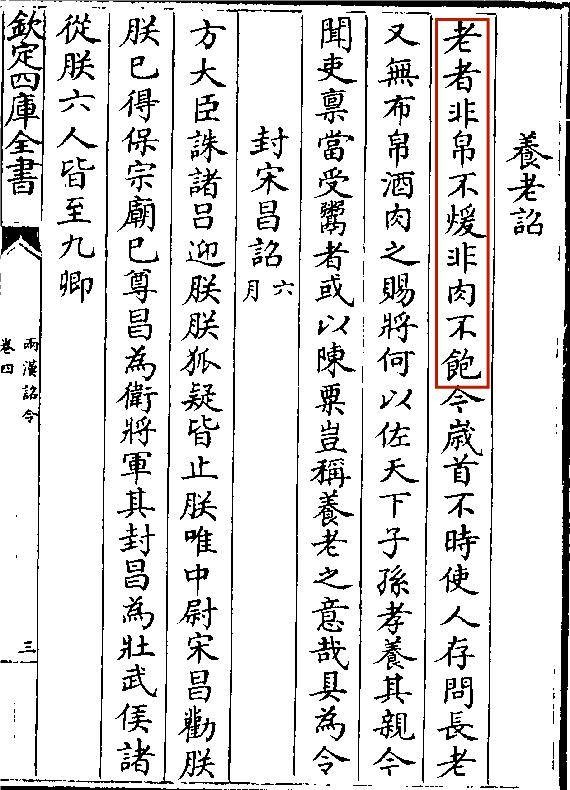 養老詔
老者非帛不煖非肉不飽今歲首不時使人存問長老
又無布帛酒肉之賜將何以佐天下子孫孝養其親今
聞吏禀當受鬻者或以陳粟豈稱養老之意哉具為令
封宋昌詔六月
方大臣誅諸呂迎朕朕狐疑皆止朕唯中尉宋昌勸朕
朕巳得保宗廟巳尊昌為衛將軍其封昌為壯武侯諸
從朕六人皆至九卿
欽定四庫全書
兩漢詔令
卷四
三